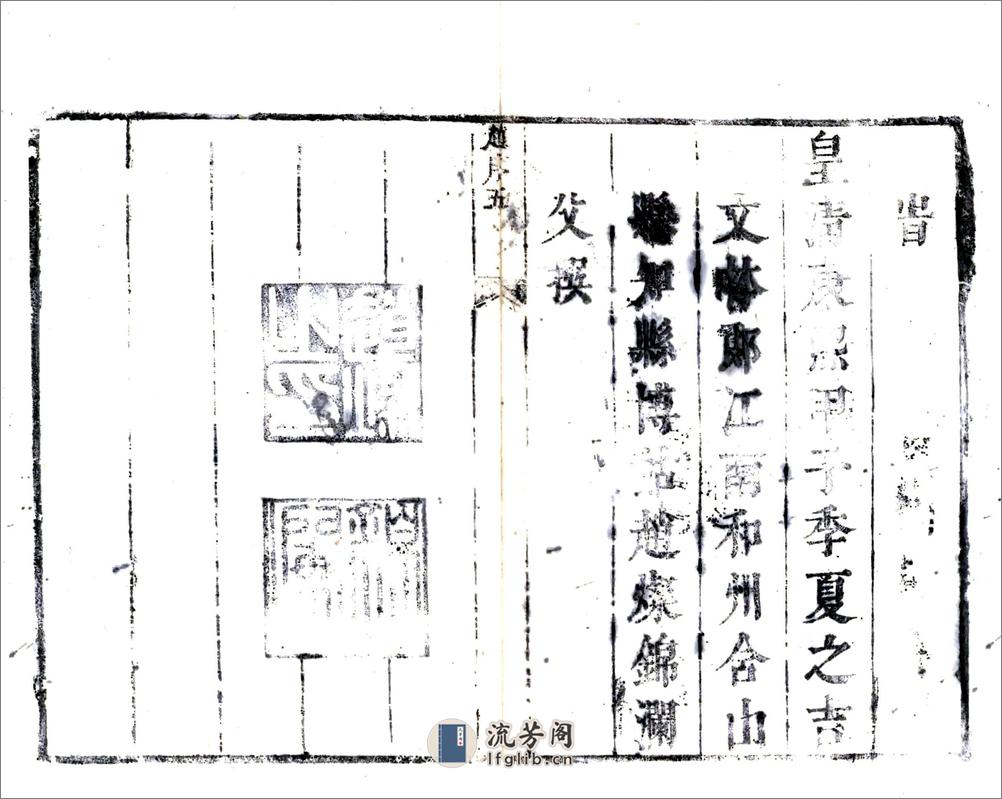 旹
皇清康熙甲子季夏之吉
文林郎江南和州含山
縣知縣博羅趙燦錦瀾
父撰
趙序五
流芳阁
lfglib.cn